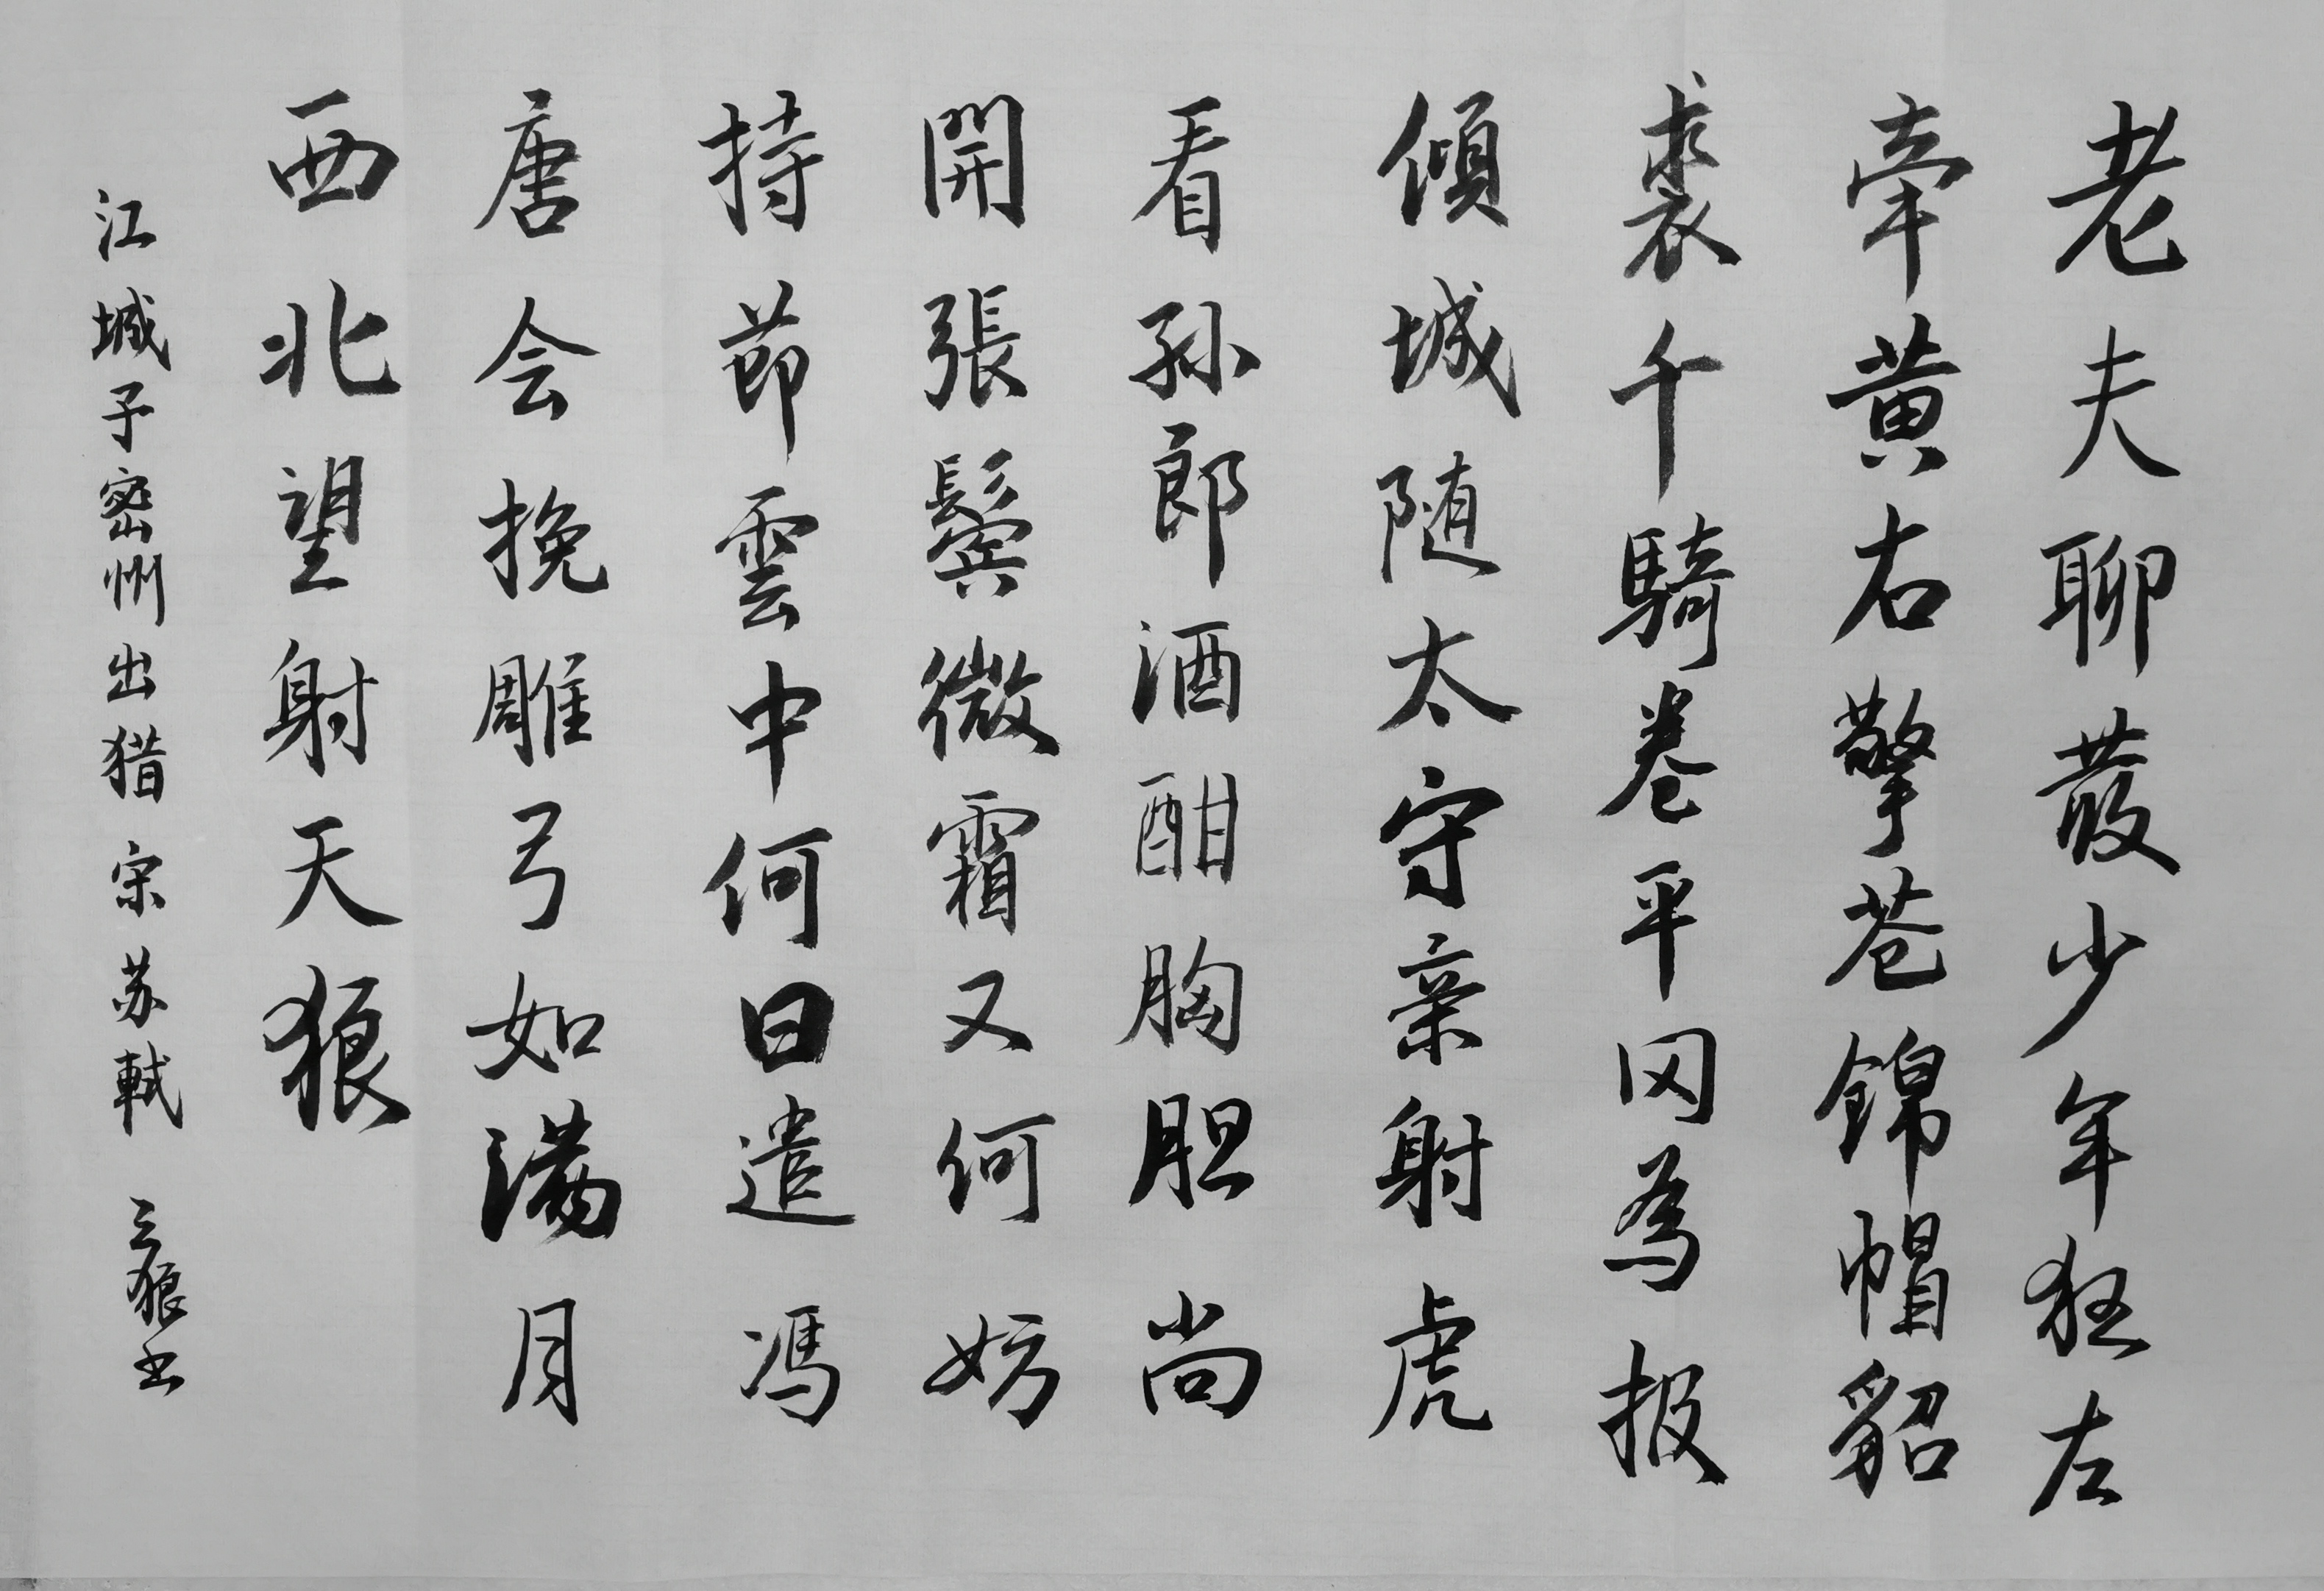 老夫聊發少年狂左
牽黄右擎苍錦帽貂
裘千騎卷平冈為报
傾城随太守亲射虎
看孙郎酒酣胸胆尚
開張鬓微霜又何妨
持節雲中何日遣馮
唐会挽雕弓如满月
西北望射天狼
江城子密州出猎 宋 苏軾 三狼书